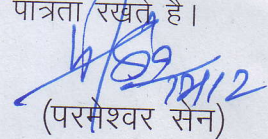 पात्रता रखते है।
(परमेश्वर सेन)